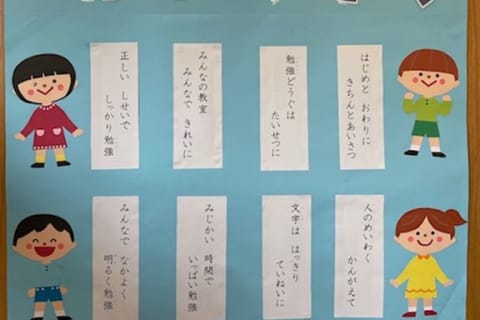 はじめと おわりに
きちんとあいさつ
勉強どうぐは
たいせつに
みんなの教室
みんなで きれいに
正しい しせいで
しっかり勉強
人のめいわく
かんがえて
文字は はっきり
ていねいに
みじかい 時間で
いっぱい勉強
みんなで なかよく
明るく勉強